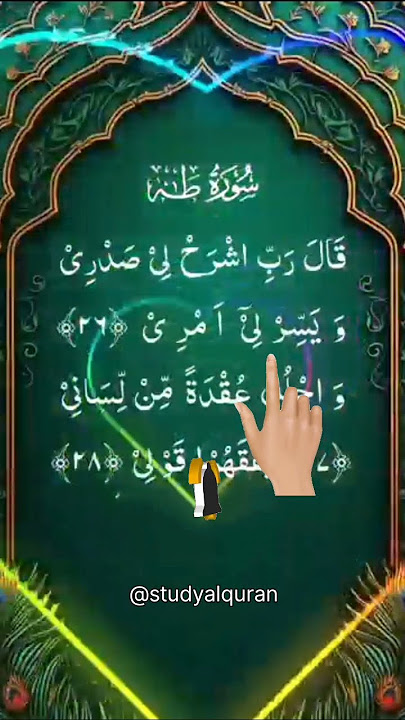 سُوْرَةُ طٰهٰ
قَالَ رَبِّ اشْرَحْ لِیْ صَدْرِیْ
وَ یَسِّرْ لِیْۤ اَ مْرِ یْ ﴿۲۶﴾
وَ احْلُلْ عُقْدَةً مِّنْ لِّسَانِیْ
قَوْ لِیْ ﴿۲۸﴾
@studyalquran